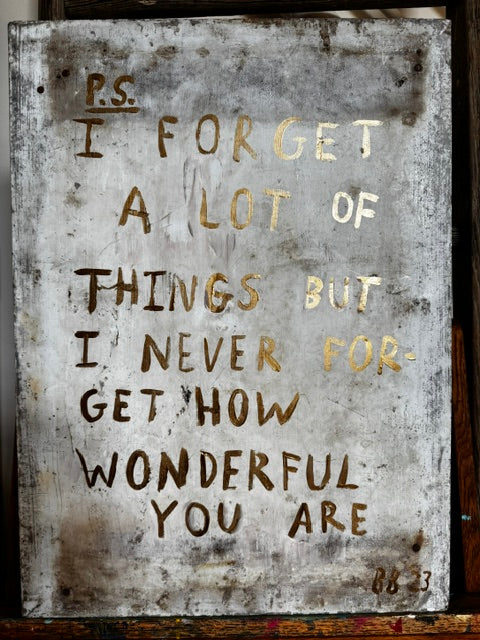 P.S.
I FORGET
A LOT OF
THINGS BUT
I NEVER FOR-
GET HOW
WONDERFUL
YOU ARE
BB 23